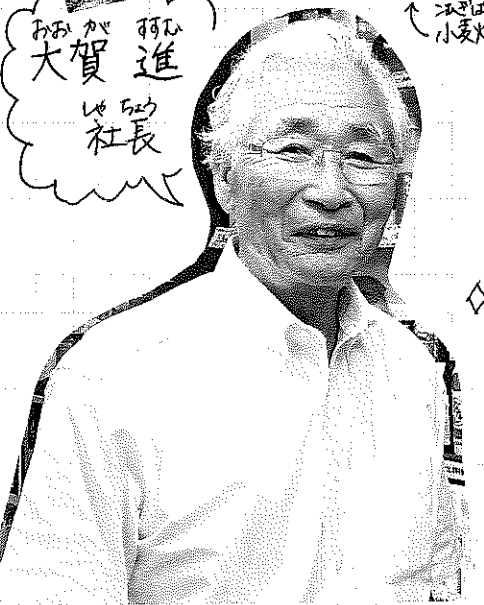 おお が すすむ
大賀 進
しゃ ちょう
社長